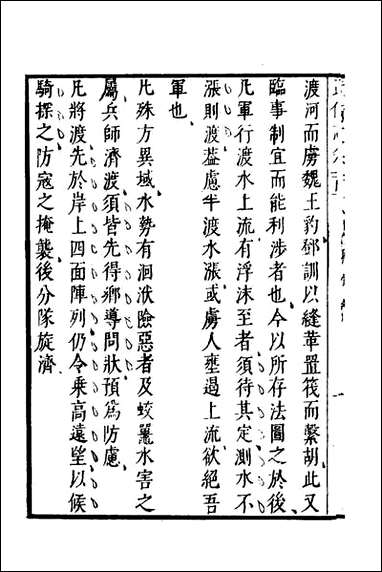 渡河而虜魏王豹鄧訓以縫革置筏而繫胡此又
臨事制宜而能利涉者也今以所存法圖之於後
凡軍行渡水上流有浮沫至者須待其定測水不
漲則渡葢慮半渡水漲或虜人壅遏上流欲絕吾
軍也
凡殊方異域水勢有洄洑險惡者及蛟鼉水害之
屬兵師濟渡須皆先得鄉導問狀預為防慮
凡將渡先於岸上四面陣列仍令乘高遠望以候
騎探之防寇之掩襲後分隊旋濟